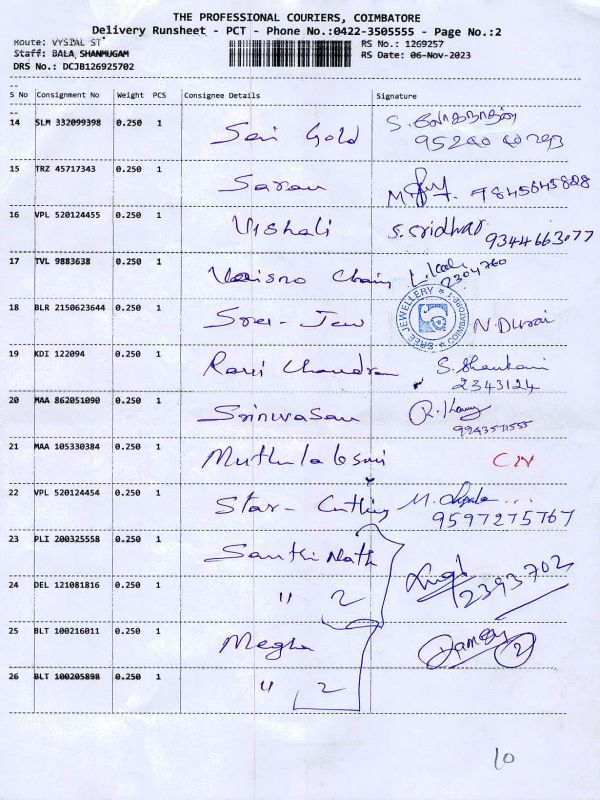 THE PROFESSIONAL COURIERS, COIMBATORE
Delivery Runsheet - PCT - Phone No.:0422-3505555 - Page No.:2
Route: VYSIAL ST
RS No.: 1269257
Staff: BALA SHANMUGAM
RS Date: 06-Nov-2023
DRS No.: DCJB126925702
S No Consignment No Weight PCS Consignee Details Signature
14 SLM 332099398 0.250 1 Gold
15 TRZ 45717343 0.250 1 Saran
16 VPL 520124455 0.250 1 Vishali S. Sridhar 9344663077
17 TVL 9883638 0.250 1 Chain 2304760
18 BLR 2150623644 0.250 1 Sree - Jew N. Durai
SREE JEWELLERY * COIMBATORE-1 *
19 KDI 122094 0.250 1 Ravi Chandran S. 2343124
20 MAA 862051090 0.250 1 Srinivasan R. 9943571555
21 MAA 105330384 0.250 1
22 VPL 520124454 0.250 1 Star - Cutting M. 9597275767
23 PLI 200325558 0.250 1 Nath
24 DEL 121081816 0.250 1 " 2 2393702
25 BLT 100216011 0.250 1 Megha 2
26 BLT 100205898 0.250 1 " 2
10